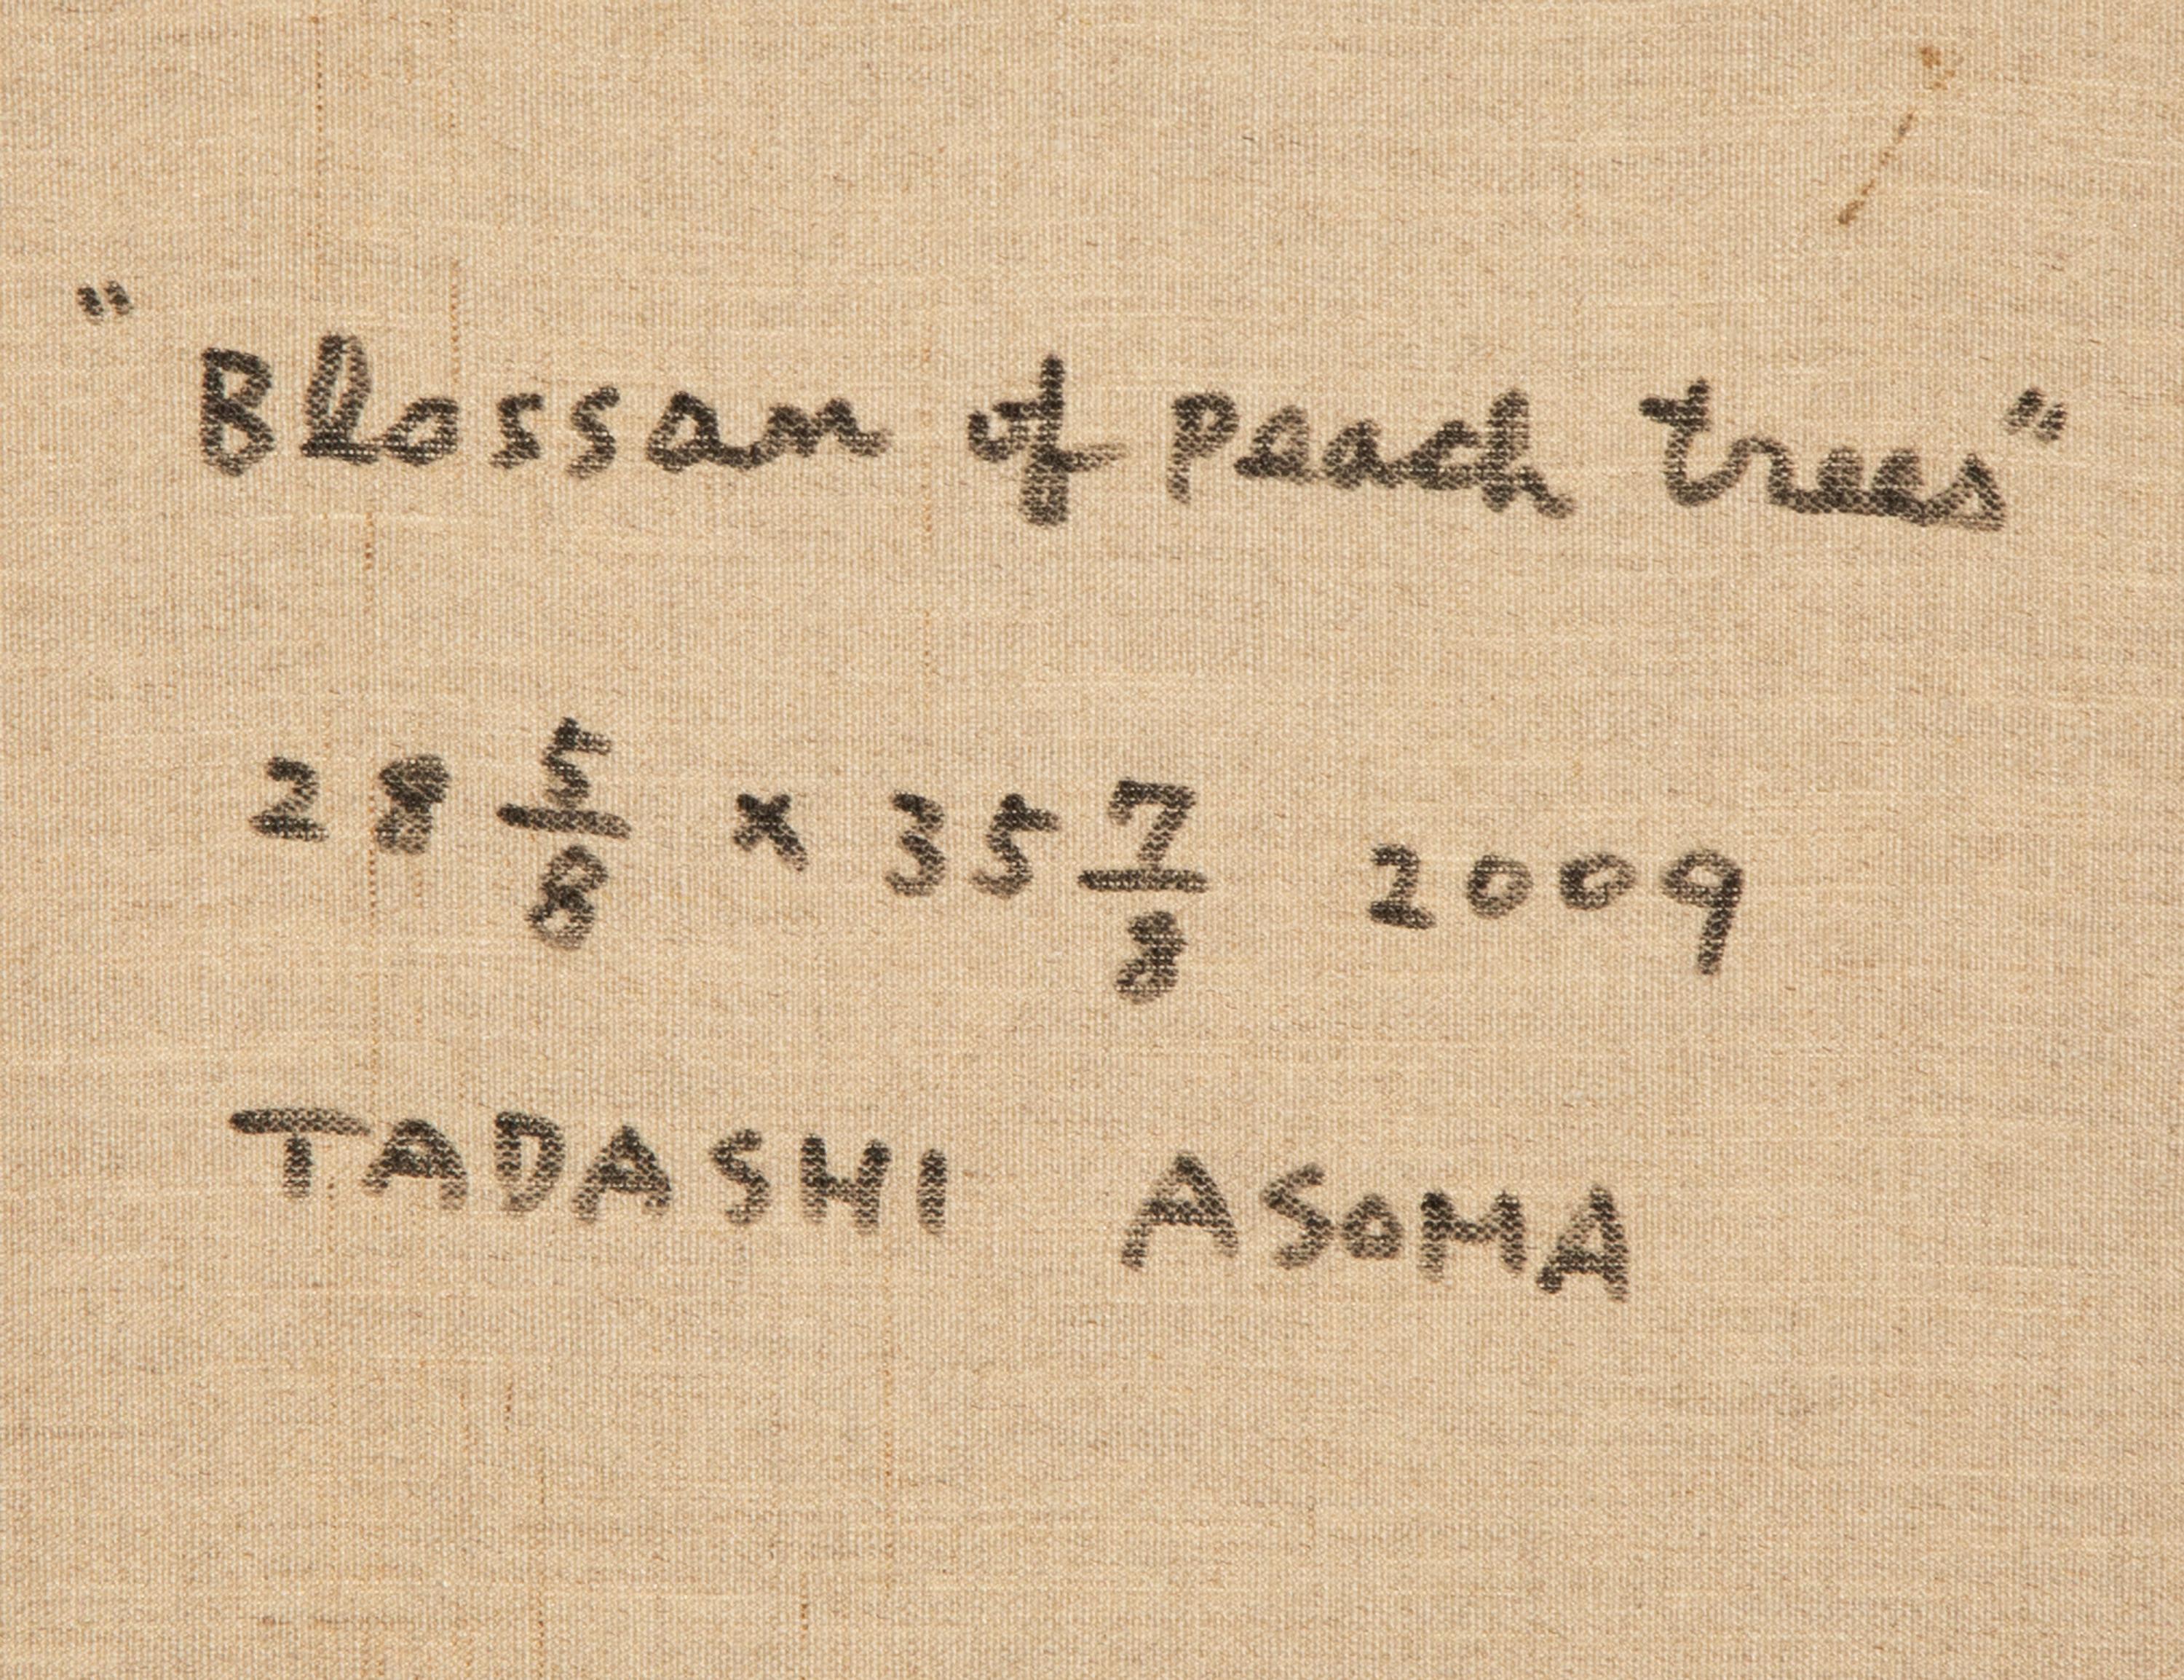 "Blossom of peach trees"
28 5/8 x 35 7/8 2009
TADASHI ASOMA